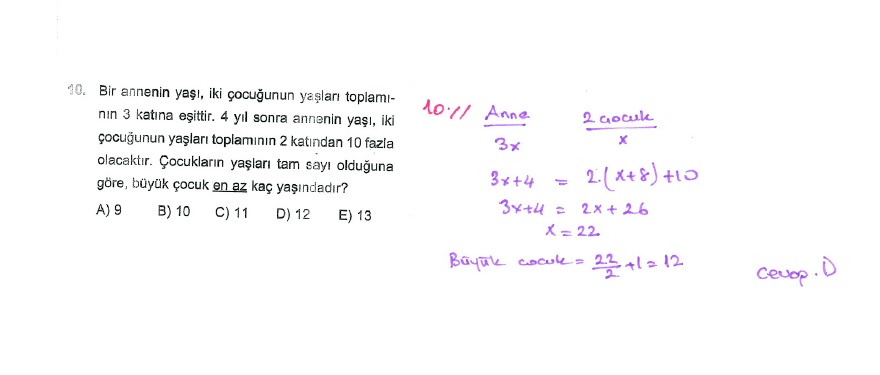 10. Bir annenin yaşı, iki çocuğunun yaşları toplamı-
nın 3 katına eşittir. 4 yıl sonra annenin yaşı, iki
çocuğunun yaşları toplamının 2 katından 10 fazla
olacaktır. Çocukların yaşları tam sayı olduğuna
göre, büyük çocuk en az kaç yaşındadır?
A) 9 B) 10 C) 11 D) 12 E) 13
10.// Anne 2 çocuk
3x x
3x+4 = 2.(x+8)+10
3x+4 = 2x+26
x = 22
Büyük çocuk = 22/2 +1 = 12
Cevap. D